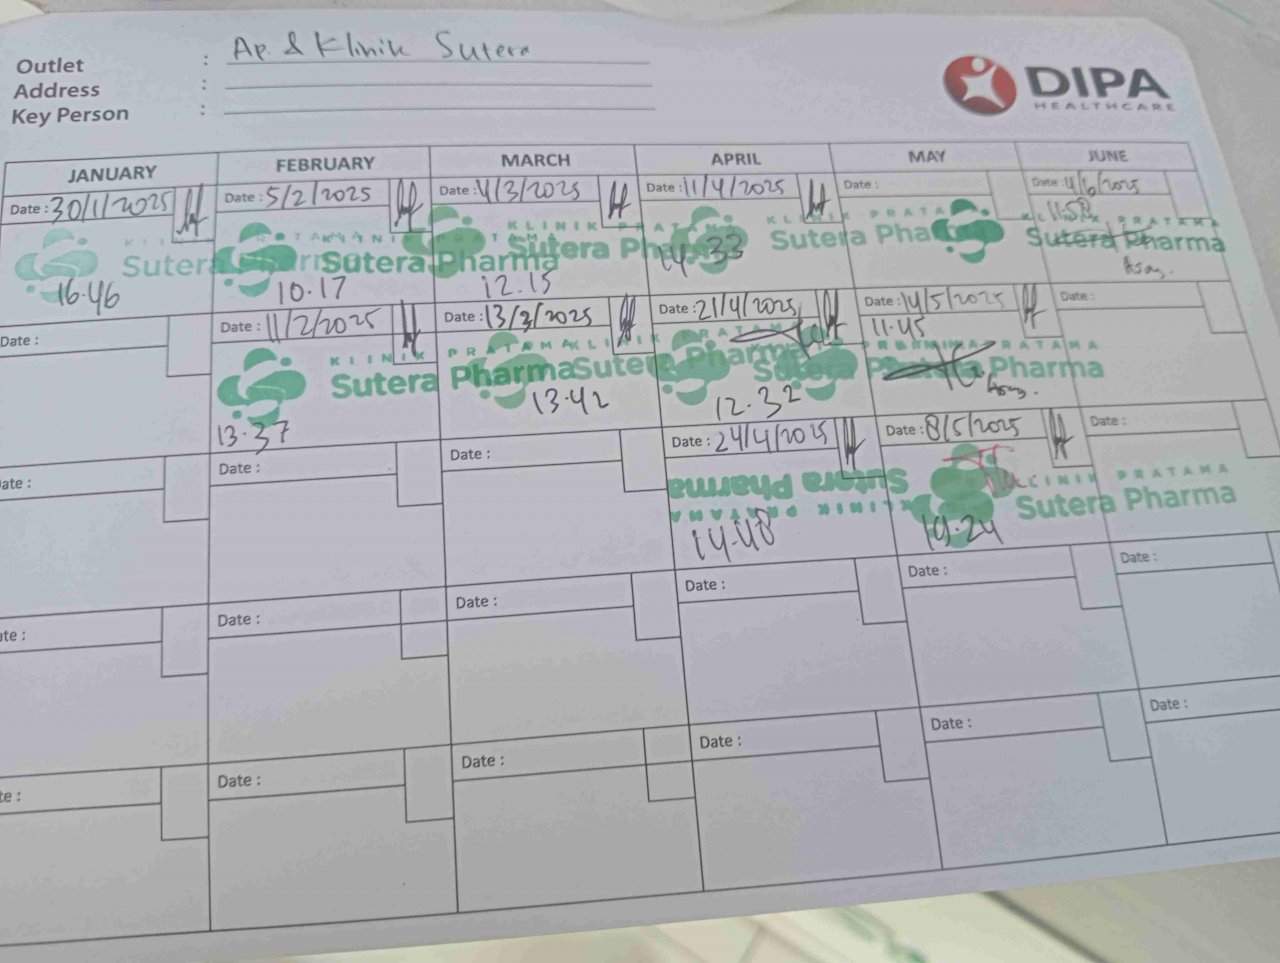 Outlet : Ap. & Klinik Sutera
Address :
Key Person :
DIPA
HEALTHCARE
JANUARY FEBRUARY MARCH APRIL MAY JUNE
Date : 30/1/2025 Date : 5/2/2025 Date : 4/3/2025 Date : 11/4/2025 Date : Date : 4/6/2025
KLINIK PRATAMA
Sutera Pharma
Sutera Pharma
Sutera Pharma
Sutera Pharma
Sutera Pharma
16.46 10.17 12.15 14.33
Date : Date : 11/2/2025 Date : 13/3/2025 Date : 21/4/2025 Date : 14/5/2025 Date :
11.45
KLINIK PRATAMA
Sutera Pharma
Sutera Pharma
Sutera Pharma
13.37 13.42 12.32
ate : Date : Date : Date : 24/4/2025 Date : 8/5/2025 Date :
Sutera Pharma
KLINIK PRATAMA
KLINIK PRATAMA
Sutera Pharma
14.48 19.24
te : Date : Date : Date : Date : Date :
te : Date : Date : Date : Date : Date :